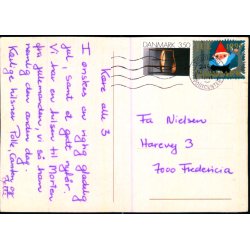 Kære alle 3
I ønskes en rigtig glædelig
jul, samt et godt nytår.
Vi har en hilsen til Morten
fra julemanden, vi så ham
nemlig den anden dag.
Kærlige hilsner Palle, Carsten og
DANMARK 3.50
Fa Nielsen
Harevej 3
7000 Fredericia